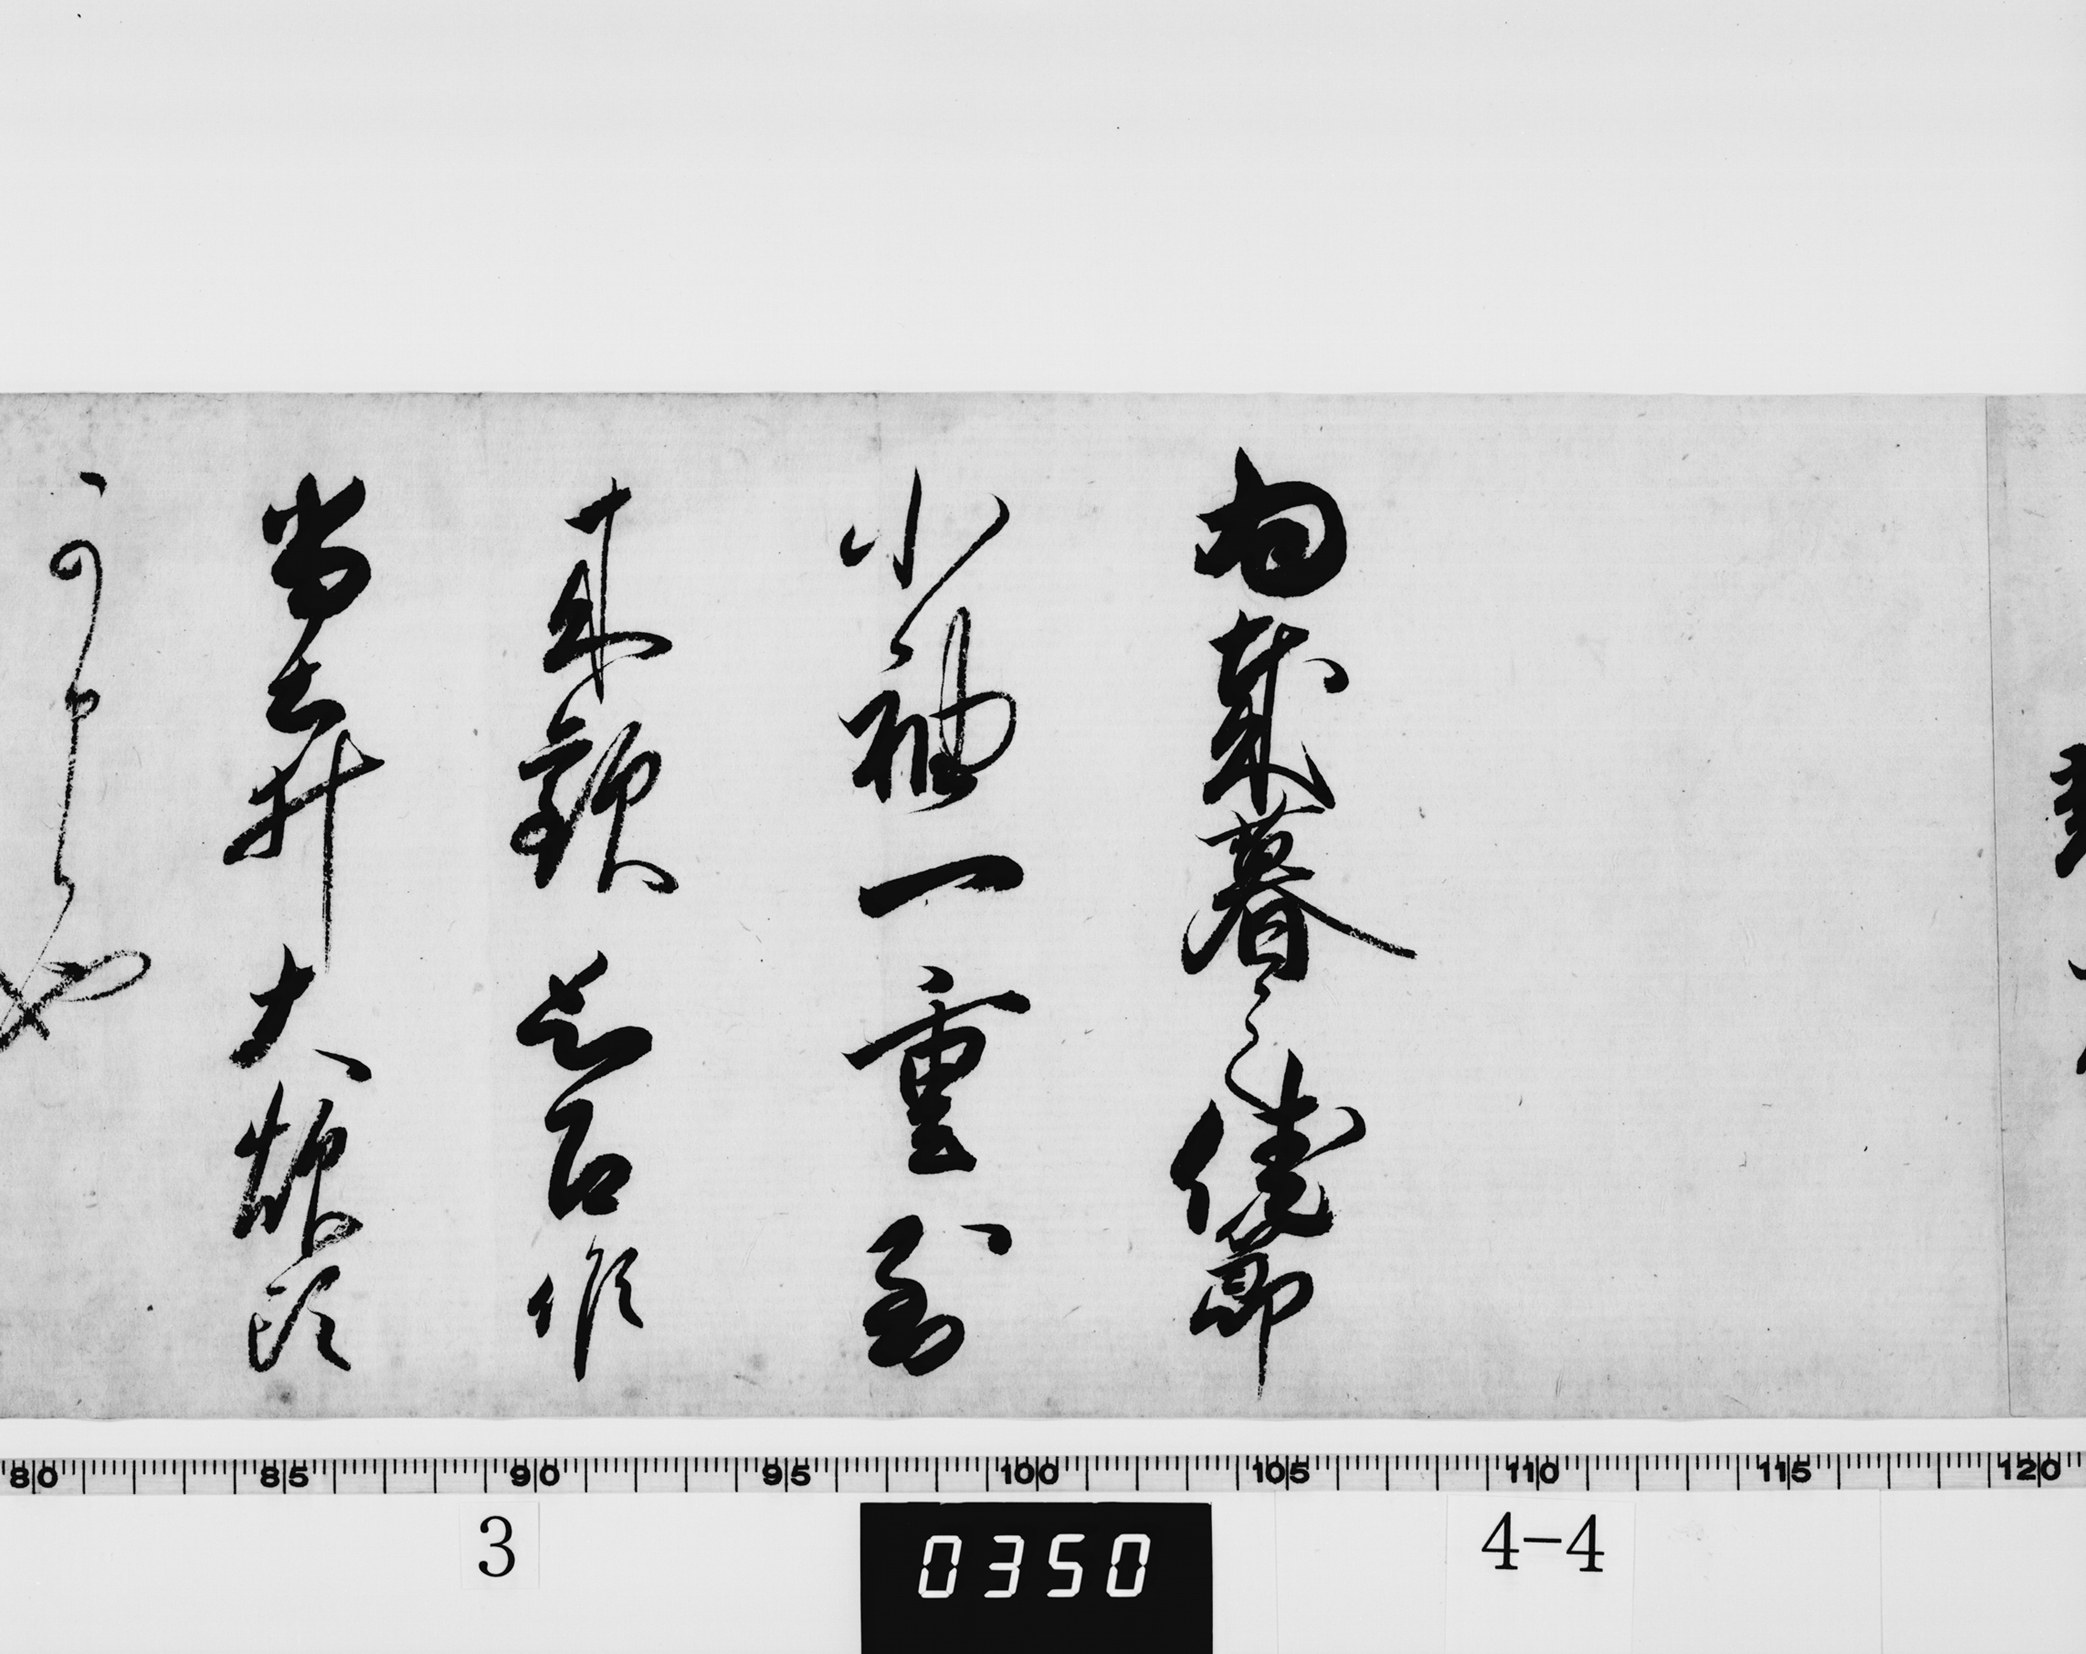 向歳暮之儀節
小袖一重到
来歓思召候
尚土井大炊頭
可申候也
80 85 90 95 100 105 110 115 120
3 0350 4-4